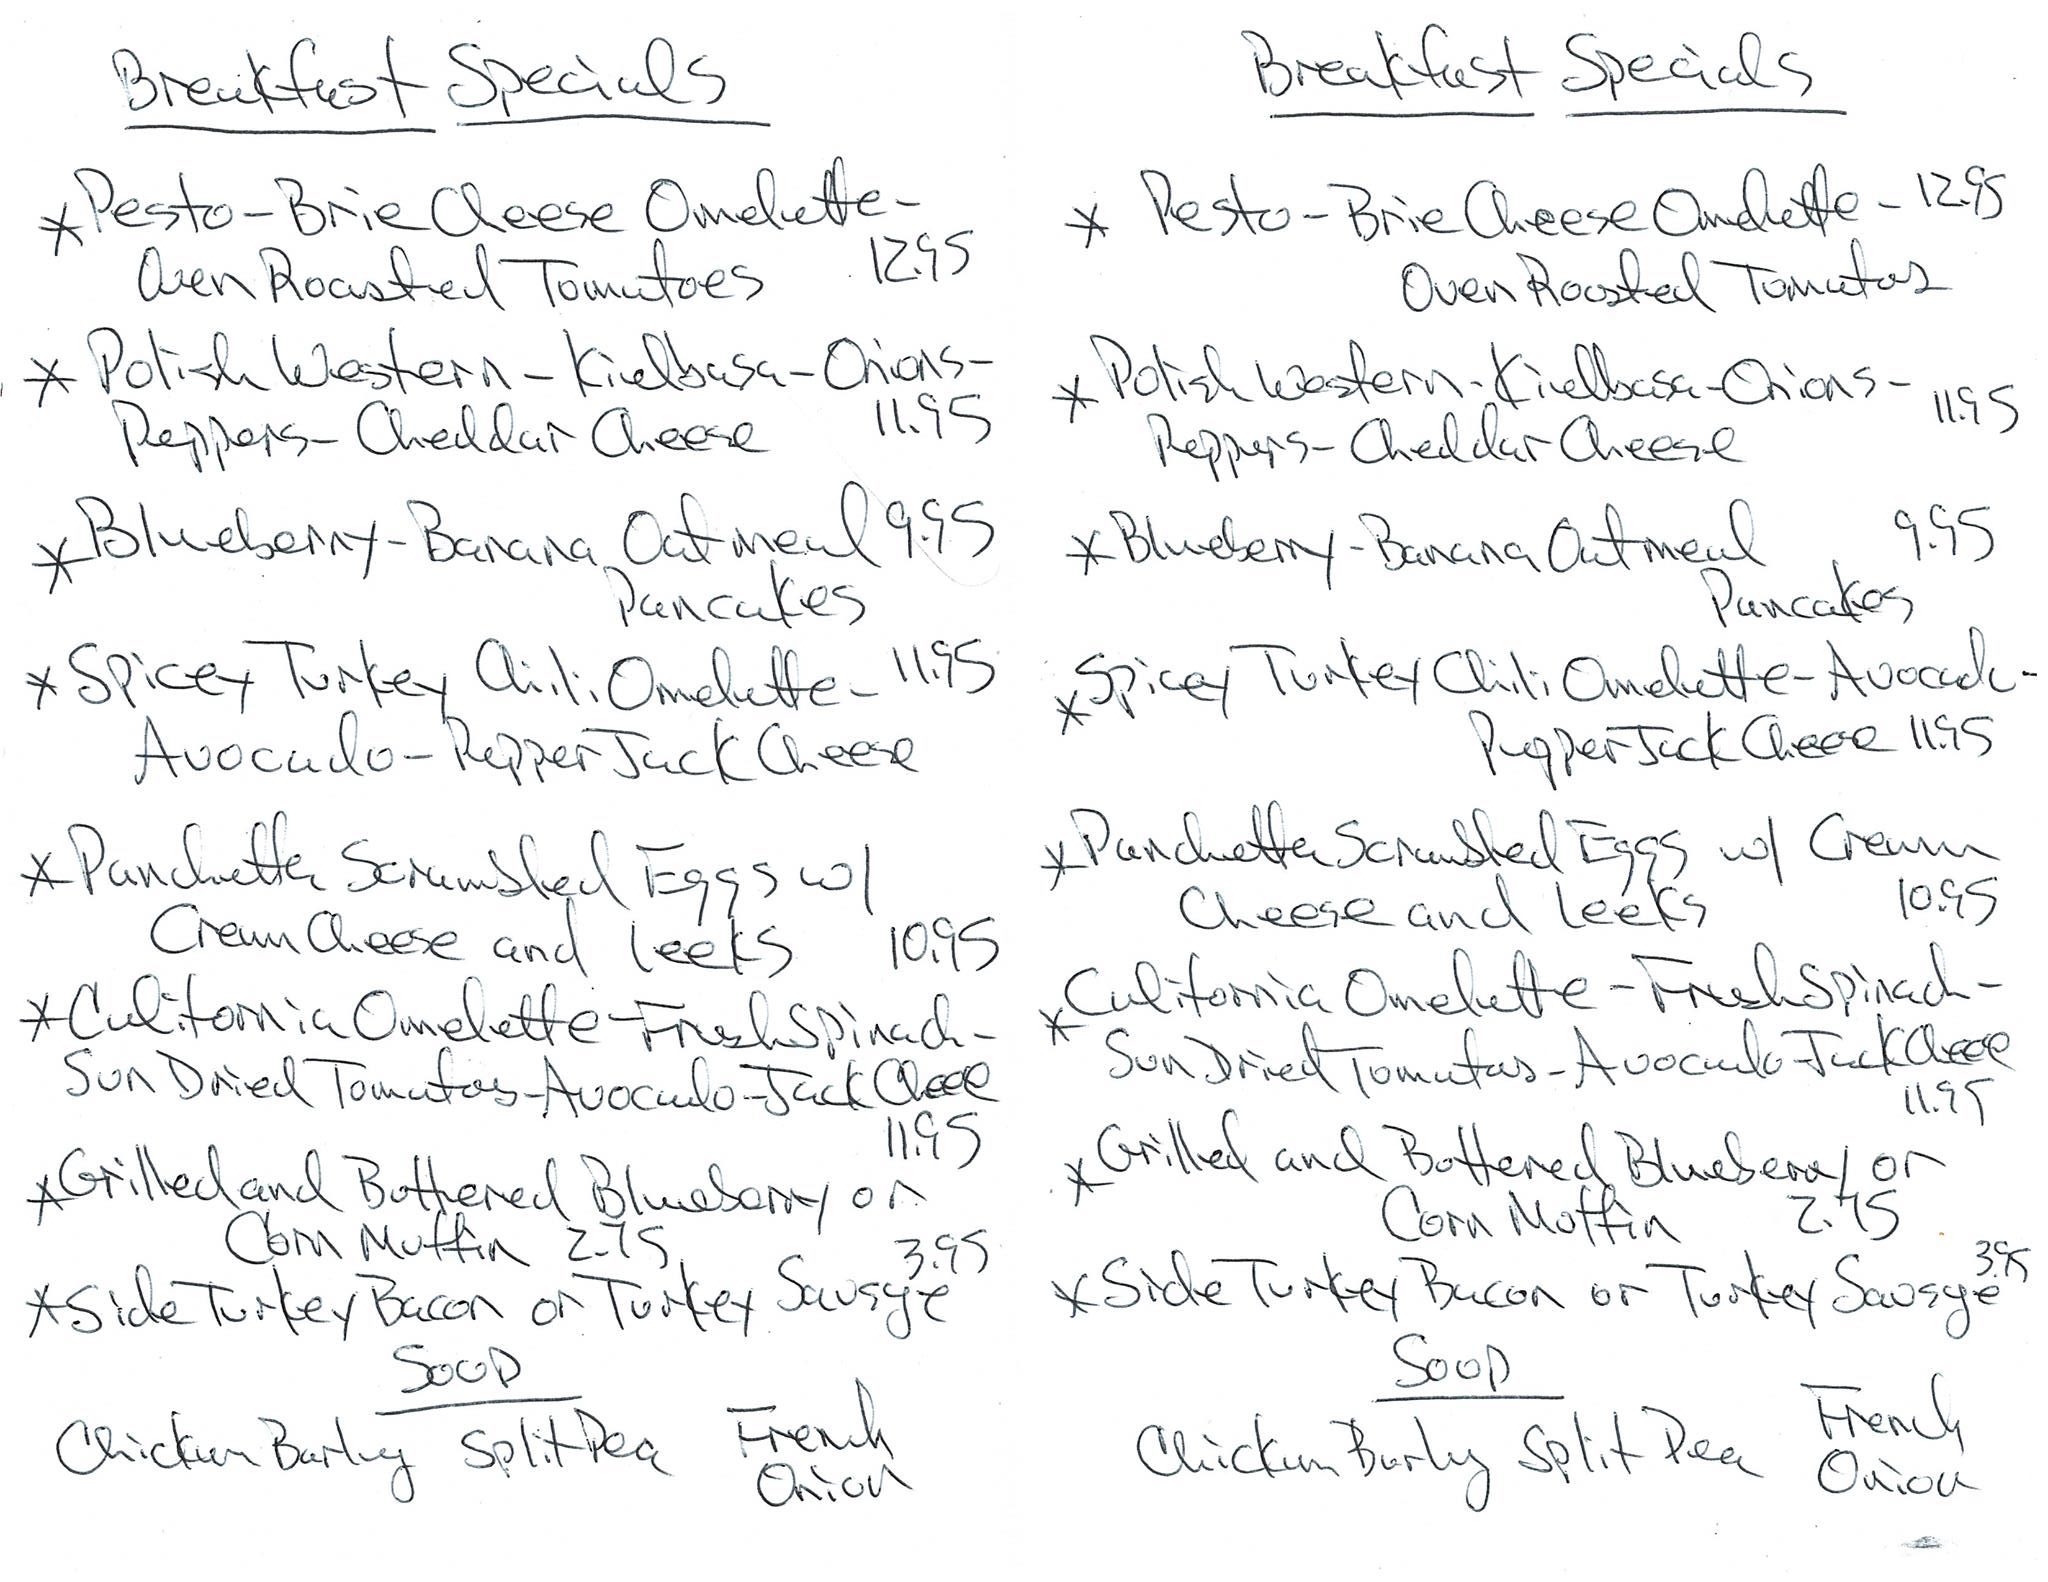 Breakfast Specials
* Pesto - Brie Cheese Omelette -
Oven Roasted Tomatoes 12.95
* Polish Western - Kielbasa - Onions -
Peppers - Cheddar Cheese 11.95
* Blueberry - Banana Oatmeal 9.95
Pancakes
* Spicey Turkey Chili Omelette - 11.95
Avocado - Pepper Jack Cheese
* Panchetta Scrambled Eggs w/
Cream Cheese and Leeks 10.95
* California Omelette - Fresh Spinach -
Sun Dried Tomatoes - Avocado - Jack Cheese
11.95
* Grilled and Buttered Blueberry or
Corn Muffin 2.75
* Side Turkey Bacon or Turkey Sausge 3.95
Soup
Chicken Barley Split Pea French
Onion
Breakfast Specials
* Pesto - Brie Cheese Omelette - 12.95
Oven Roasted Tomatoes
* Polish Western - Kielbasa - Onions - 11.95
Peppers - Cheddar Cheese
* Blueberry - Banana Oatmeal 9.95
Pancakes
* Spicey Turkey Chili Omelette - Avocado -
Pepper Jack Cheese 11.95
* Panchetta Scrambled Eggs w/ Cream
Cheese and Leeks 10.95
* California Omelette - Fresh Spinach -
Sun Dried Tomatoes - Avocado - Jack Cheese
11.95
* Grilled and Buttered Blueberry or
Corn Muffin 2.75
* Side Turkey Bacon or Turkey Sausge 3.95
Soup
Chicken Barley Split Pea French
Onion